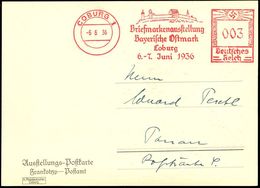 COBURG 1
-6.6.36
Briefmarkenausstellung
Bayerische Ostmark
Coburg
6.-7. Juni 1936
003
Deutsches
Reich
Herrn
Eduard Peschl
Passau
Ausstellungs-Postkarte
Frankotyp-Postamt